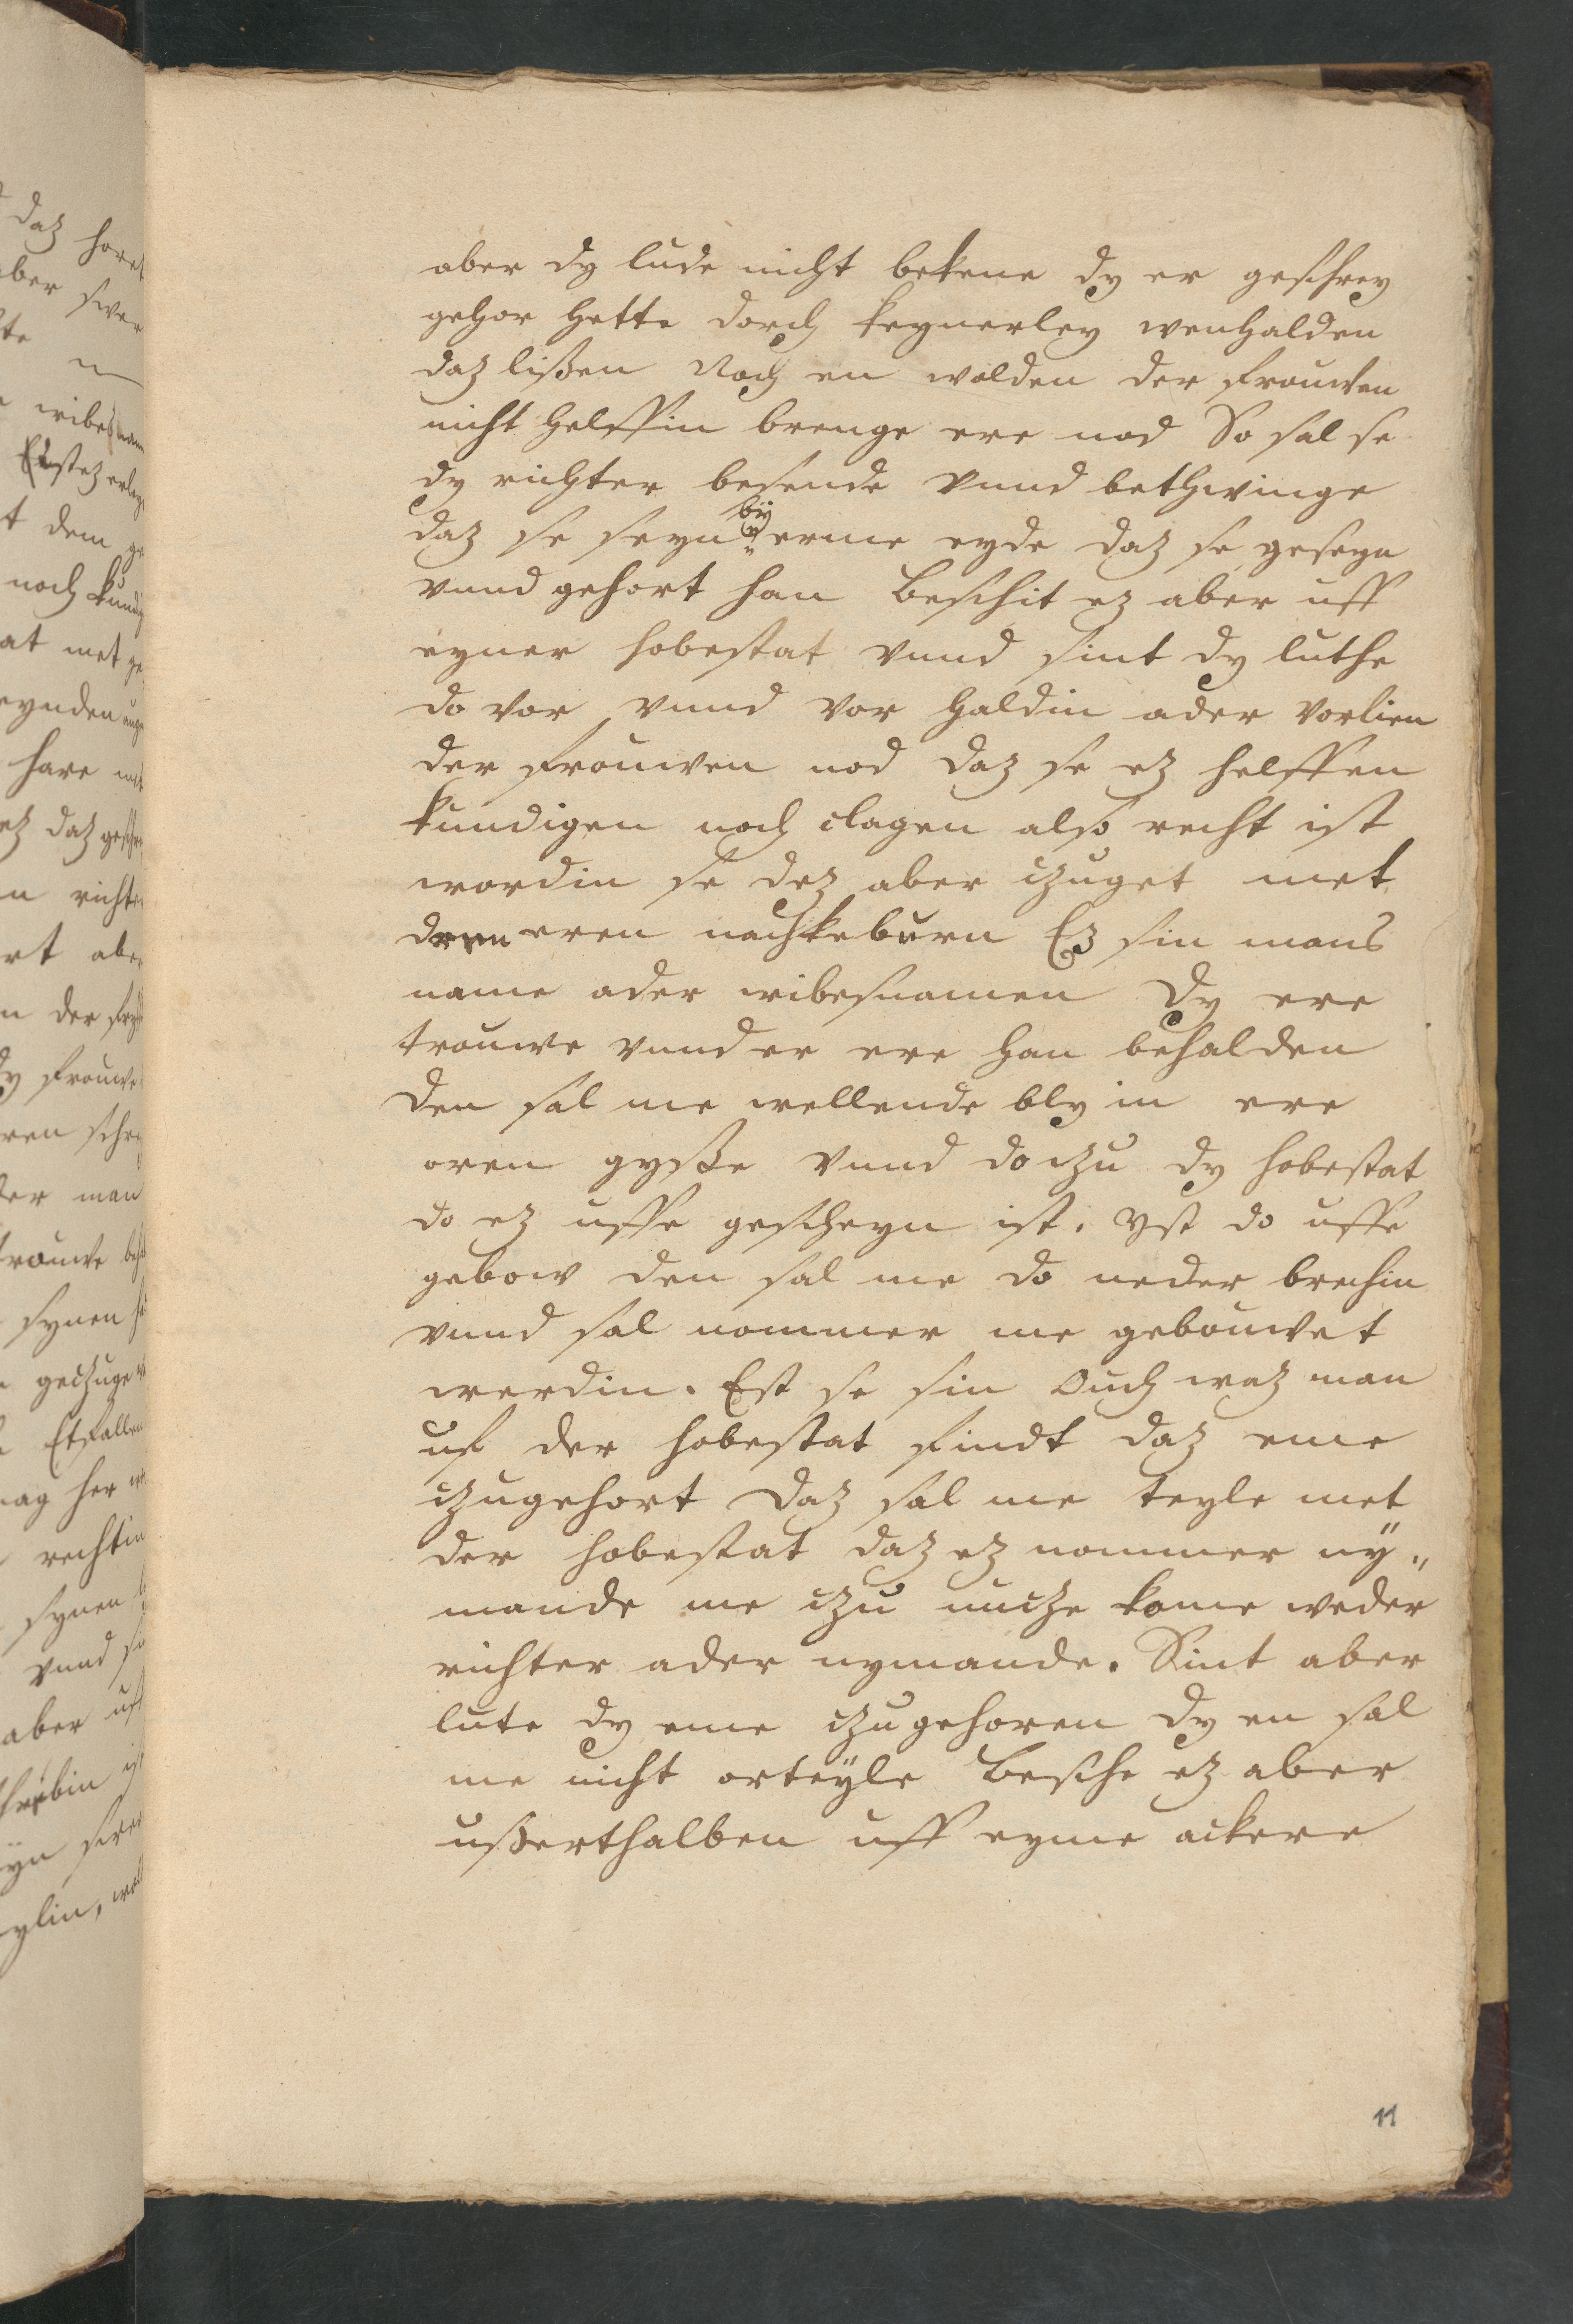 aber dy lude nicht bekene dy er geschrey
gehor hette dorch keynerley wenhalden
daz lißen Noch en wolden der frouwen
nicht helffin brenge ere nod So sal se
dy richter besende vnnd bethwinge
daz se seyn by erme eyde daz se geseyn
vnnd gehort han Beschit ez aber uff
eyner hobestat vnnd sint dy luthe
do vor vnnd vor haldin ader vorlien
der frouwen nod daz se ez helffen
kundigen noch clagen also recht ist
wordin se dez aber czuget met
eren nachkeburn Ez sin mans
name ader wibesnamen Dy ere
trouwe vnnd er ere han behalden
den sal me wellende bly in ere
oren gyße vnnd do czu dy hobestat
do ez uffe gescheyn ist. Yst do uffe
gebow den sal me do neder brechin
vnnd sal nommer me gebouwet
werdin. Est se sin Ouch waz man
uf der hobestat findt daz eme
czugehort Daz sal me teyle met
der hobestat daz ez nommer ny„
mande me czu nucze kome weder
richter ader nymande. Sint aber
lute dy eme czugehoren Dy en sal
me nicht orteyle Besche ez aber
ußerthalben uff eyme ackere
11